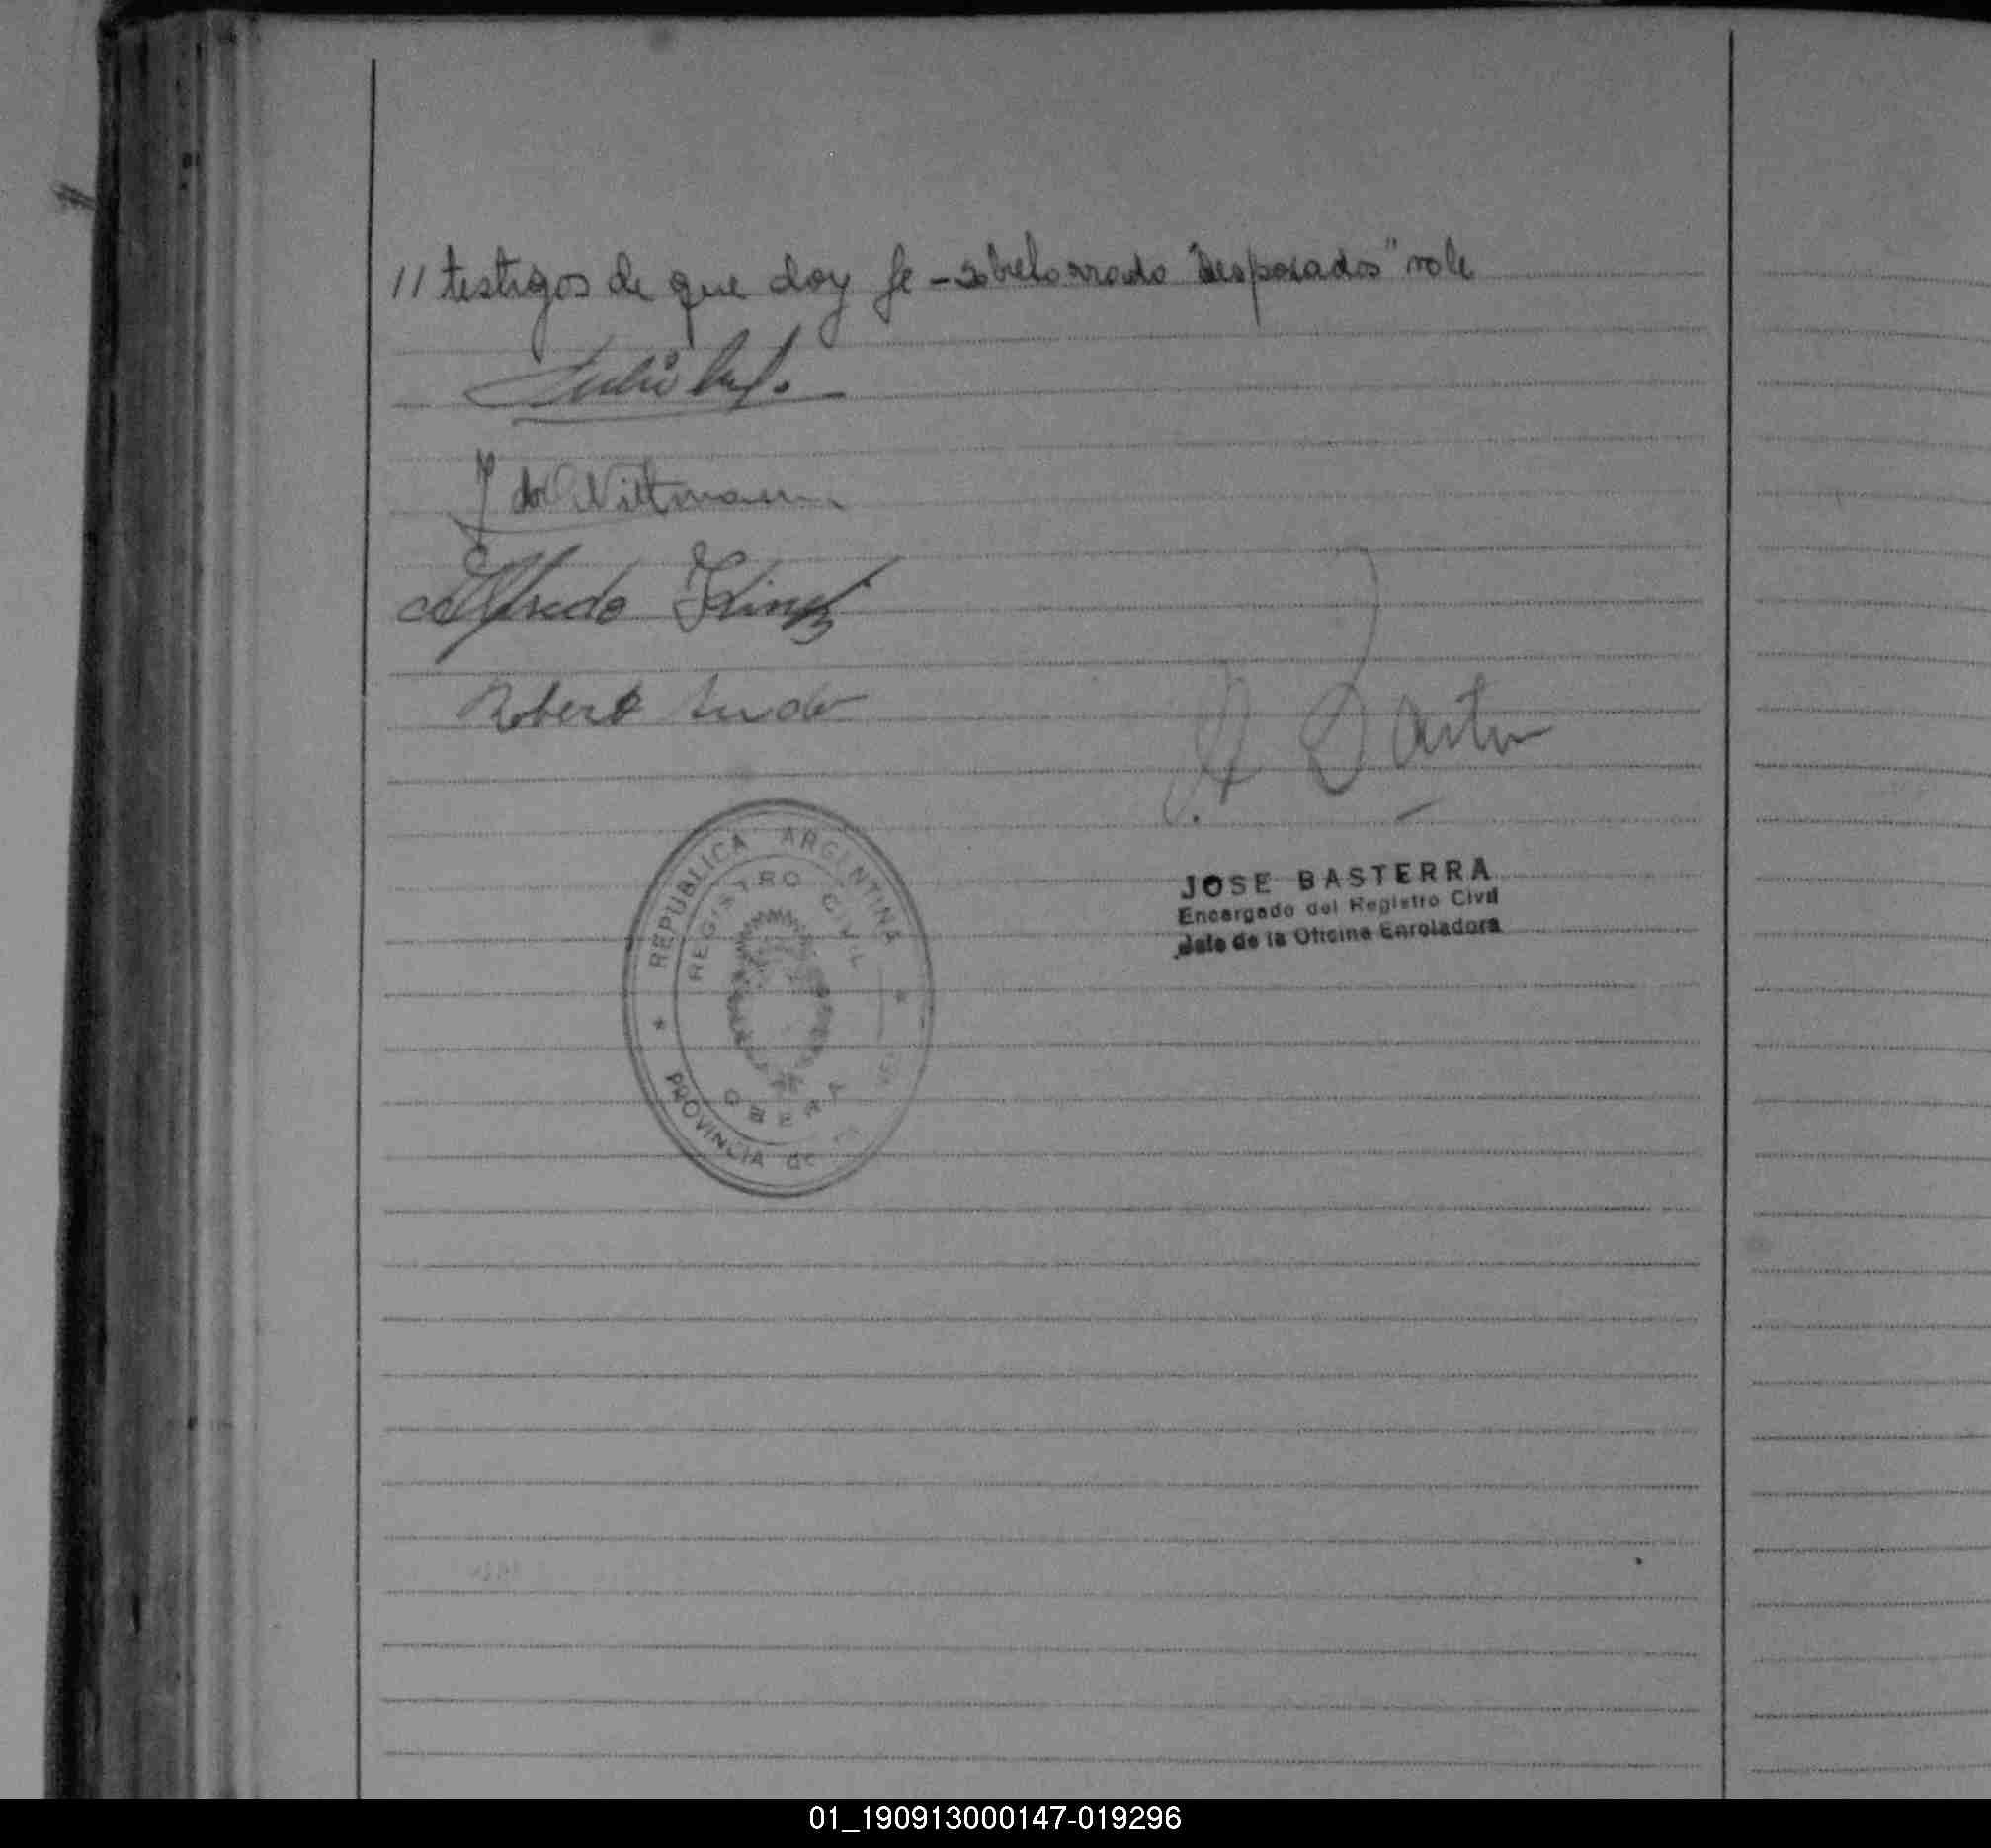 // testigos de que doy fe - sobreborrado "Desposados" vale
Julio
J de Wittmann
Alfredo King
Robert
JOSE BASTERRA
Encargado del Registro Civil
Jefe de la Oficina Enroladora
REPUBLICA ARGENTINA
REGISTRO CIVIL
OBERA
PROVINCIA de
01_190913000147-019296